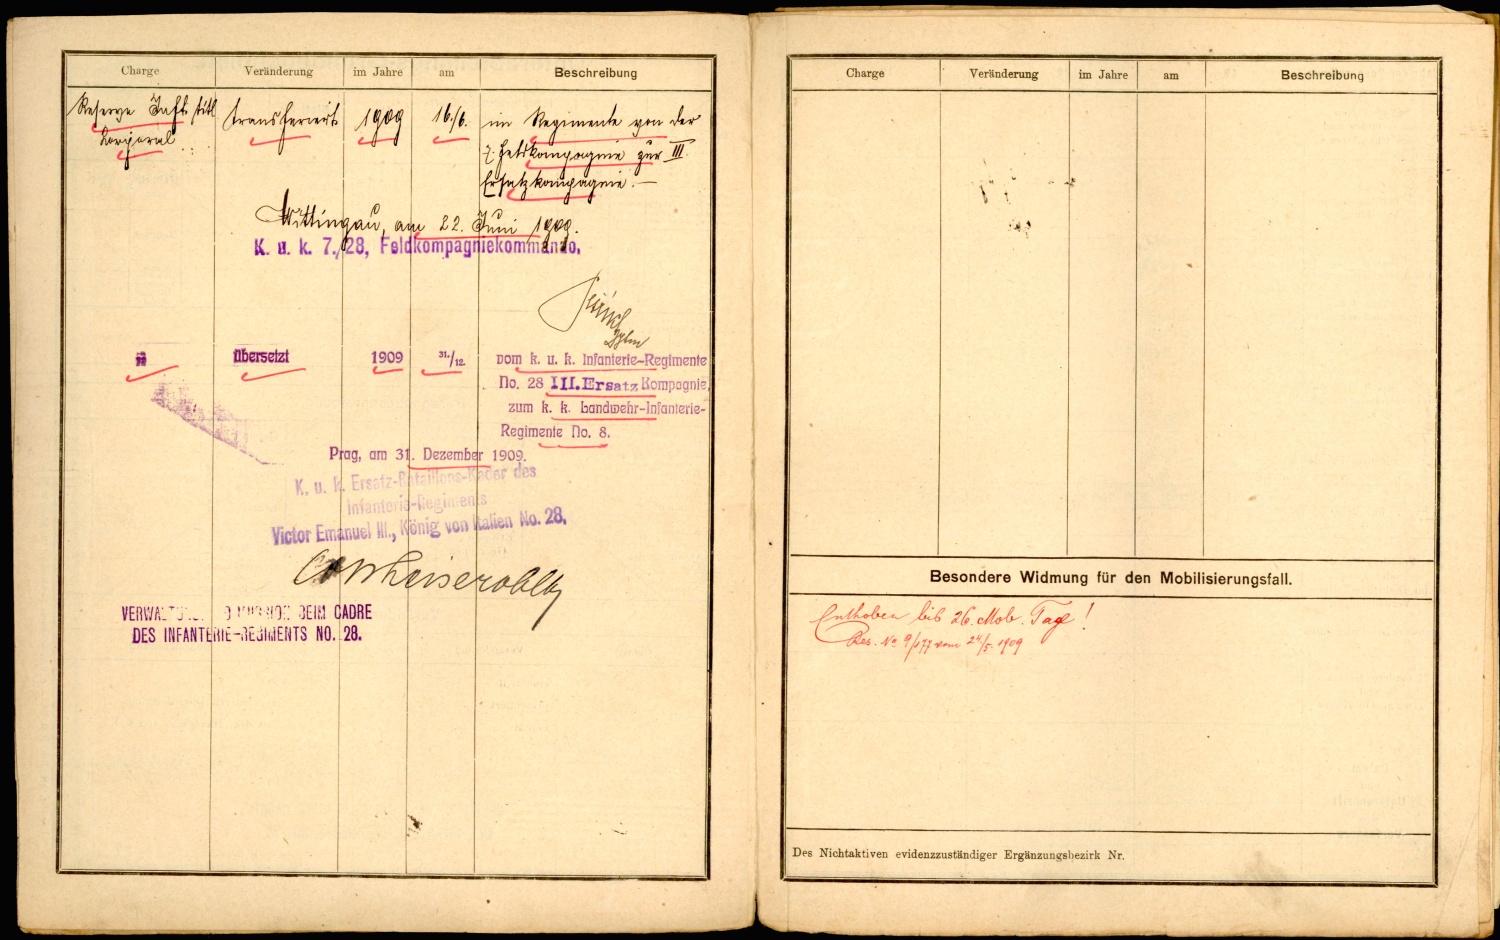 Charge Veränderung im Jahre am Beschreibung
Reserve Inft. titl. transferiert 1909 16./6. im Regimente von der
Korporal 7. Feldkompagnie zur III.
Ersatzkompagnie.—
Wittingau, am 22. Juni 1909.
K. u. k. 7./28, Feldkompagniekommando.
übersetzt 1909 31./12. vom k. u. k. Infanterie-Regimente
No. 28 III. Ersatz Kompagnie,
zum k. k. Landwehr-Infanterie-
Regimente No. 8.
Prag, am 31. Dezember 1909.
K. u. k. Ersatz-Bataillons-Kader des
Infanterie-Regiments
Victor Emanuel III., König von Italien No. 28.
BEIM CADRE
DES INFANTERIE-REGIMENTS NO. 28.
Charge Veränderung im Jahre am Beschreibung
Besondere Widmung für den Mobilisierungsfall.
Enthoben bis 26. Mob. Tag!
Res. No 9/177 vom 24/5. 1909
Des Nichtaktiven evidenzzuständiger Ergänzungsbezirk Nr.